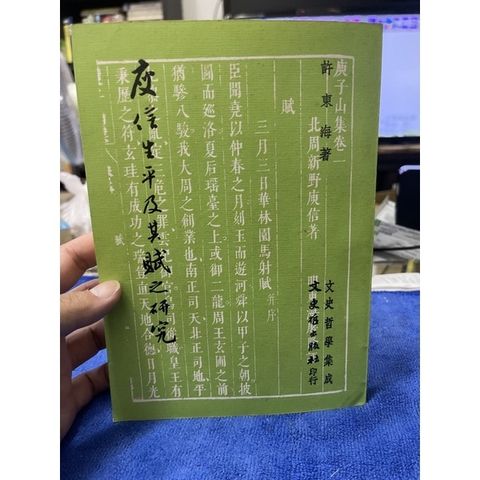 庾子山集卷一
許東海著
北周新野庾信著
賦
三月三日華林園馬射賦 并序
臣聞堯以仲春之月刻玉而遊河舜以甲子之朝披
圖而巡洛夏后瑤臺之上或御二龍周王玄圃之前
猶驂八駿我大周之創業也南正司天北正司地平
定三危之罪雲官司職皇王有
秉歷之符玄珪有成功之瑞天地合德日月光
賦
文史哲學集成
文史哲出版社印行
庾信生平及其賦之研究